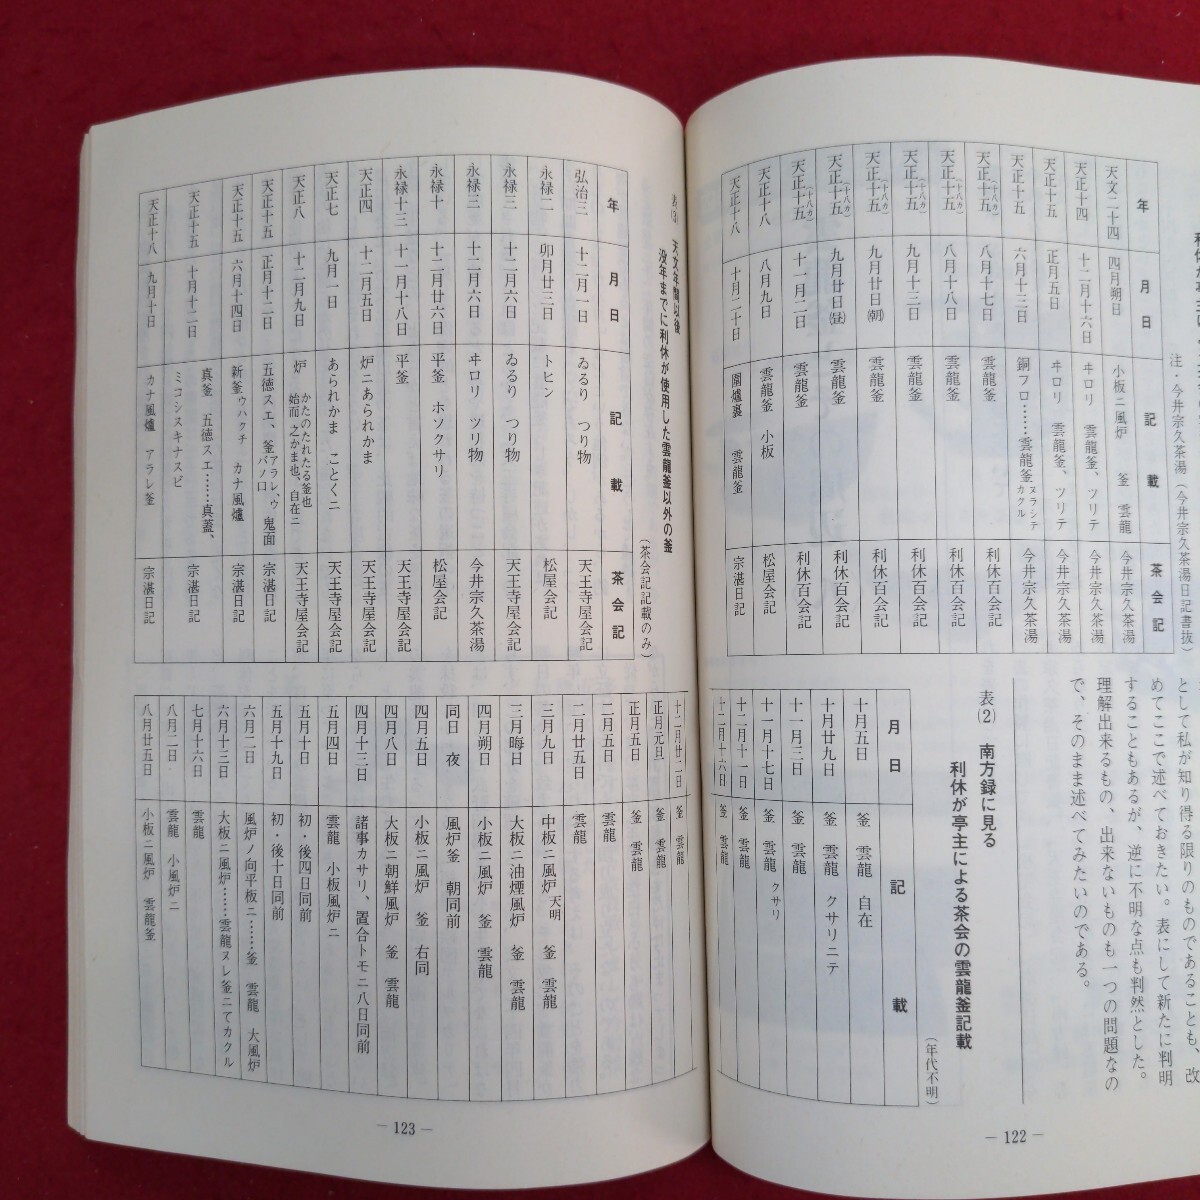 注・今井宗久茶湯（今井宗久茶湯日記書抜）
年 月日 記載 茶会記
天文二十四 四月朔日 小板ニ風炉 釜 雲龍 今井宗久茶湯
天正十四 十二月十六日 ヰロリ 雲龍釜、ツリテ 今井宗久茶湯
天正十五 正月五日 ヰロリ 雲龍釜、ツリテ 今井宗久茶湯
天正十五（十八カ） 六月十三日 銅フロ……雲龍釜ヌラシテカクル 今井宗久茶湯
天正十五（十八カ） 八月十七日 雲龍釜 利休百会記
天正十五（十八カ） 八月十八日 雲龍釜 利休百会記
天正十五（十八カ） 九月十三日 雲龍釜 利休百会記
天正十五（十八カ） 九月廿日（朝） 雲龍釜 利休百会記
天正十五（十八カ） 九月廿日（昼） 雲龍釜 利休百会記
天正十五（十八カ） 十一月二日 雲龍釜 利休百会記
天正十八 八月九日 雲龍釜 小板 松屋会記
天正十八 十月二十日 圍爐裏 雲龍釜 宗湛日記
として私が知り得る限りのものであることも、改
めてここで述べておきたい。表にして新たに判明
することもあるが、逆に不明な点も判然とした。
理解出来るもの、出来ないものも一つの問題なの
で、そのまま述べてみたいのである。
表(2) 南方録に見る
利休が亭主による茶会の雲龍釜記載
（年代不明）
月日 記載
十月五日 釜 雲龍 自在
十月廿九日 釜 雲龍 クサリニテ
十一月三日 釜 雲龍
十一月十七日 釜 雲龍 クサリ
十二月十一日 釜 雲龍
十二月十六日 釜 雲龍
— 122 —
表(3) 天文年間以後
没年までに利休が使用した雲龍釜以外の釜
（茶会記記載のみ）
年 月日 記載 茶会記
弘治三 十二月一日 ゐるり つり物 天王寺屋会記
永禄二 卯月廿三日 トヒン 松屋会記
永禄三 十二月六日 ゐるり つり物 天王寺屋会記
永禄三 十二月六日 ヰロリ ツリ物 今井宗久茶湯
永禄十 十二月廿六日 平釜 ホソクサリ 松屋会記
永禄十三 十一月十八日 平釜 天王寺屋会記
天正四 十二月五日 炉ニあられかま 天王寺屋会記
天正七 九月一日 あられかま ことくニ 天王寺屋会記
天正八 十二月九日 炉 かたのたれたる釜也 始而之かま也、自在ニ 天王寺屋会記
天正十五 正月十二日 五徳スエ、釜アラレ、ウバノ口 鬼面 宗湛日記
天正十五 六月十四日 新釜ウハクチ カナ風爐 宗湛日記
天正十五 十月十二日 真釜 五徳スエ……真蓋、ミコシスキナスビ 宗湛日記
天正十八 九月十日 カナ風爐 アラレ釜 宗湛日記
十二月廿二日 釜 雲龍
正月元旦 釜 雲龍
正月五日 釜 雲龍
二月五日 雲龍
二月廿五日 雲龍
三月九日 中板ニ風炉天明 釜 雲龍
三月晦日 大板ニ油煙風炉 釜 雲龍
四月朔日 小板ニ風炉 釜 雲龍
同日 夜 風炉釜 朝同前
四月五日 小板ニ風炉 釜 右同
四月八日 大板ニ朝鮮風炉 釜 雲龍
四月十三日 諸事カサリ、置合トモニ八日同前
五月四日 雲龍 小板風炉ニ
五月十日 初・後四日同前
五月十九日 初・後十日同前
六月二日 風炉ノ向平板ニ……釜 雲龍 大風炉
六月十三日 大板ニ風炉……雲龍ヌレ釜ニテカクル
七月十六日 雲龍
八月二日 雲龍 小風炉ニ
八月廿五日 小板ニ風炉 雲龍釜
— 123 —